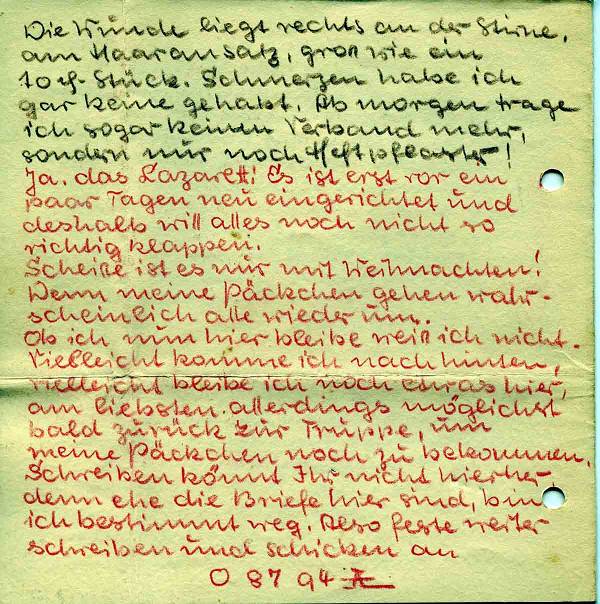 Die Wunde liegt rechts an der Stirne,
am Haaransatz, groß wie ein
10 ₰-Stück. Schmerzen habe ich
gar keine gehabt. Ab morgen trage
ich sogar keinen Verband mehr,
sondern nur noch Heftpflaster!
Ja, das Lazarett! Es ist erst vor ein
paar Tagen neu eingerichtet und
deshalb will alles noch nicht so
richtig klappen.
Scheiße ist es nur mit Weihnachten!
Denn meine Päckchen gehen wahr-
scheinlich alle wieder um.
Ob ich nun hier bleibe weiß ich nicht.
Vielleicht komme ich nach hinten,
vielleicht bleibe ich noch etwas hier,
am liebsten allerdings möglichst
bald zurück zur Truppe, um
meine Päckchen noch zu bekommen.
Schreiben könnt Ihr nicht hierher,
denn ehe die Briefe hier sind, bin
ich bestimmt weg. Also feste weiter
schreiben und schicken an
08794 A